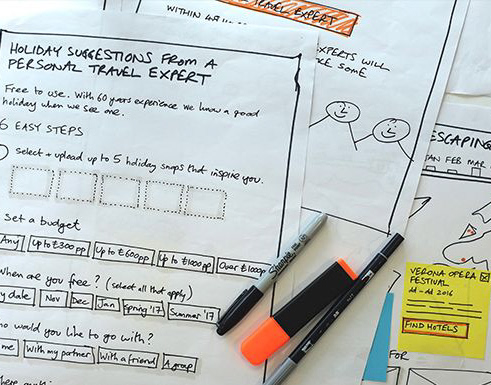 HOLIDAY SUGGESTIONS FROM A
PERSONAL TRAVEL EXPERT
Free to use. With 60 years experience we know a good
holiday when we see one.
6 EASY STEPS
Select + upload up to 5 holiday snaps that inspire you.
Set a budget
Any Up to £300pp Up to £600pp Up to £1000pp Over £1000pp
When are you free? (select all that apply)
date Nov Dec Jan Spring '17 Summer '17
would you like to go with?
me With my partner With a friend A group
WITHIN
TRAVEL EXPERT
EXPERTS WILL
SOME
ESCAPING
JAN FEB MAR
VERONA OPERA
FESTIVAL
dd-dd 2016
FIND HOTELS
FOR
Sharpie